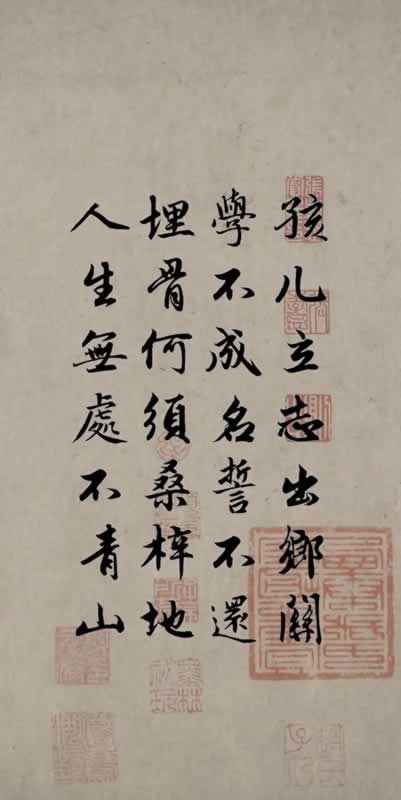 孩儿立志出鄉關
學不成名誓不還
埋骨何須桑梓地
人生無處不青山